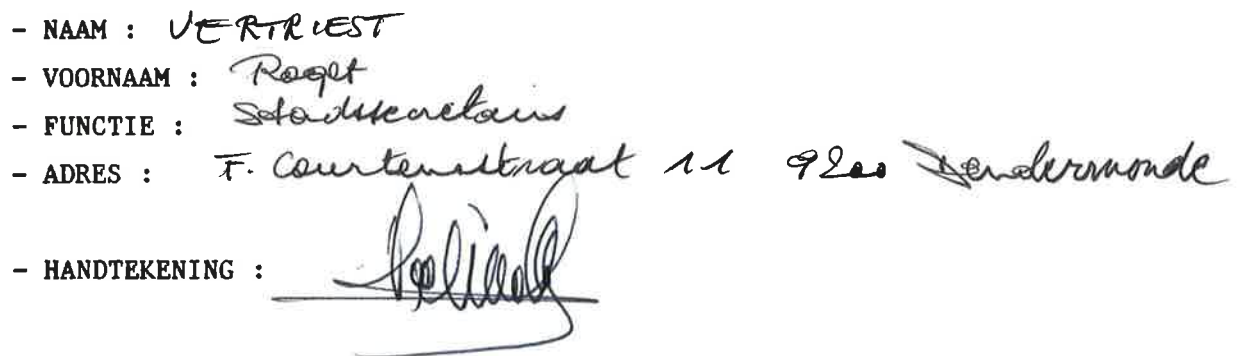 - NAAM : VERTRIEST
- VOORNAAM : Roger
- FUNCTIE : Stadssecretaris
- ADRES : F. Courtensstraat 11 9200 Dendermonde
- HANDTEKENING :